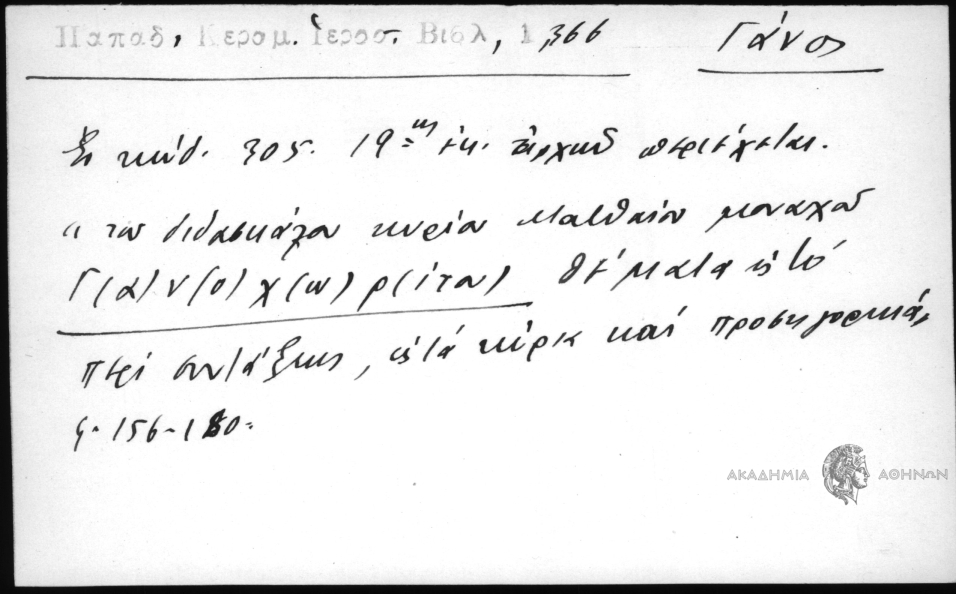 Παπαδ. Κεραμ. Ιεροσ. Βιβλ, 1,366 Γάνος
Ἐν κώδ. 305. 19ης ἑκ. ἀρχαῦ περιέχεται.
"τοῦ διδασκάλου κυρίου Ματθαίου μοναχοῦ
Γ(α)ν(ο)χ(ω)ρ(ίτου) θέματα εἰς τό
περί συντάξεως, εἰς τά κύρια καί προσηγορικά,
φ. 156-180.
ΑΚΑΔΗΜΙΑ ΑΘΗΝΩΝ